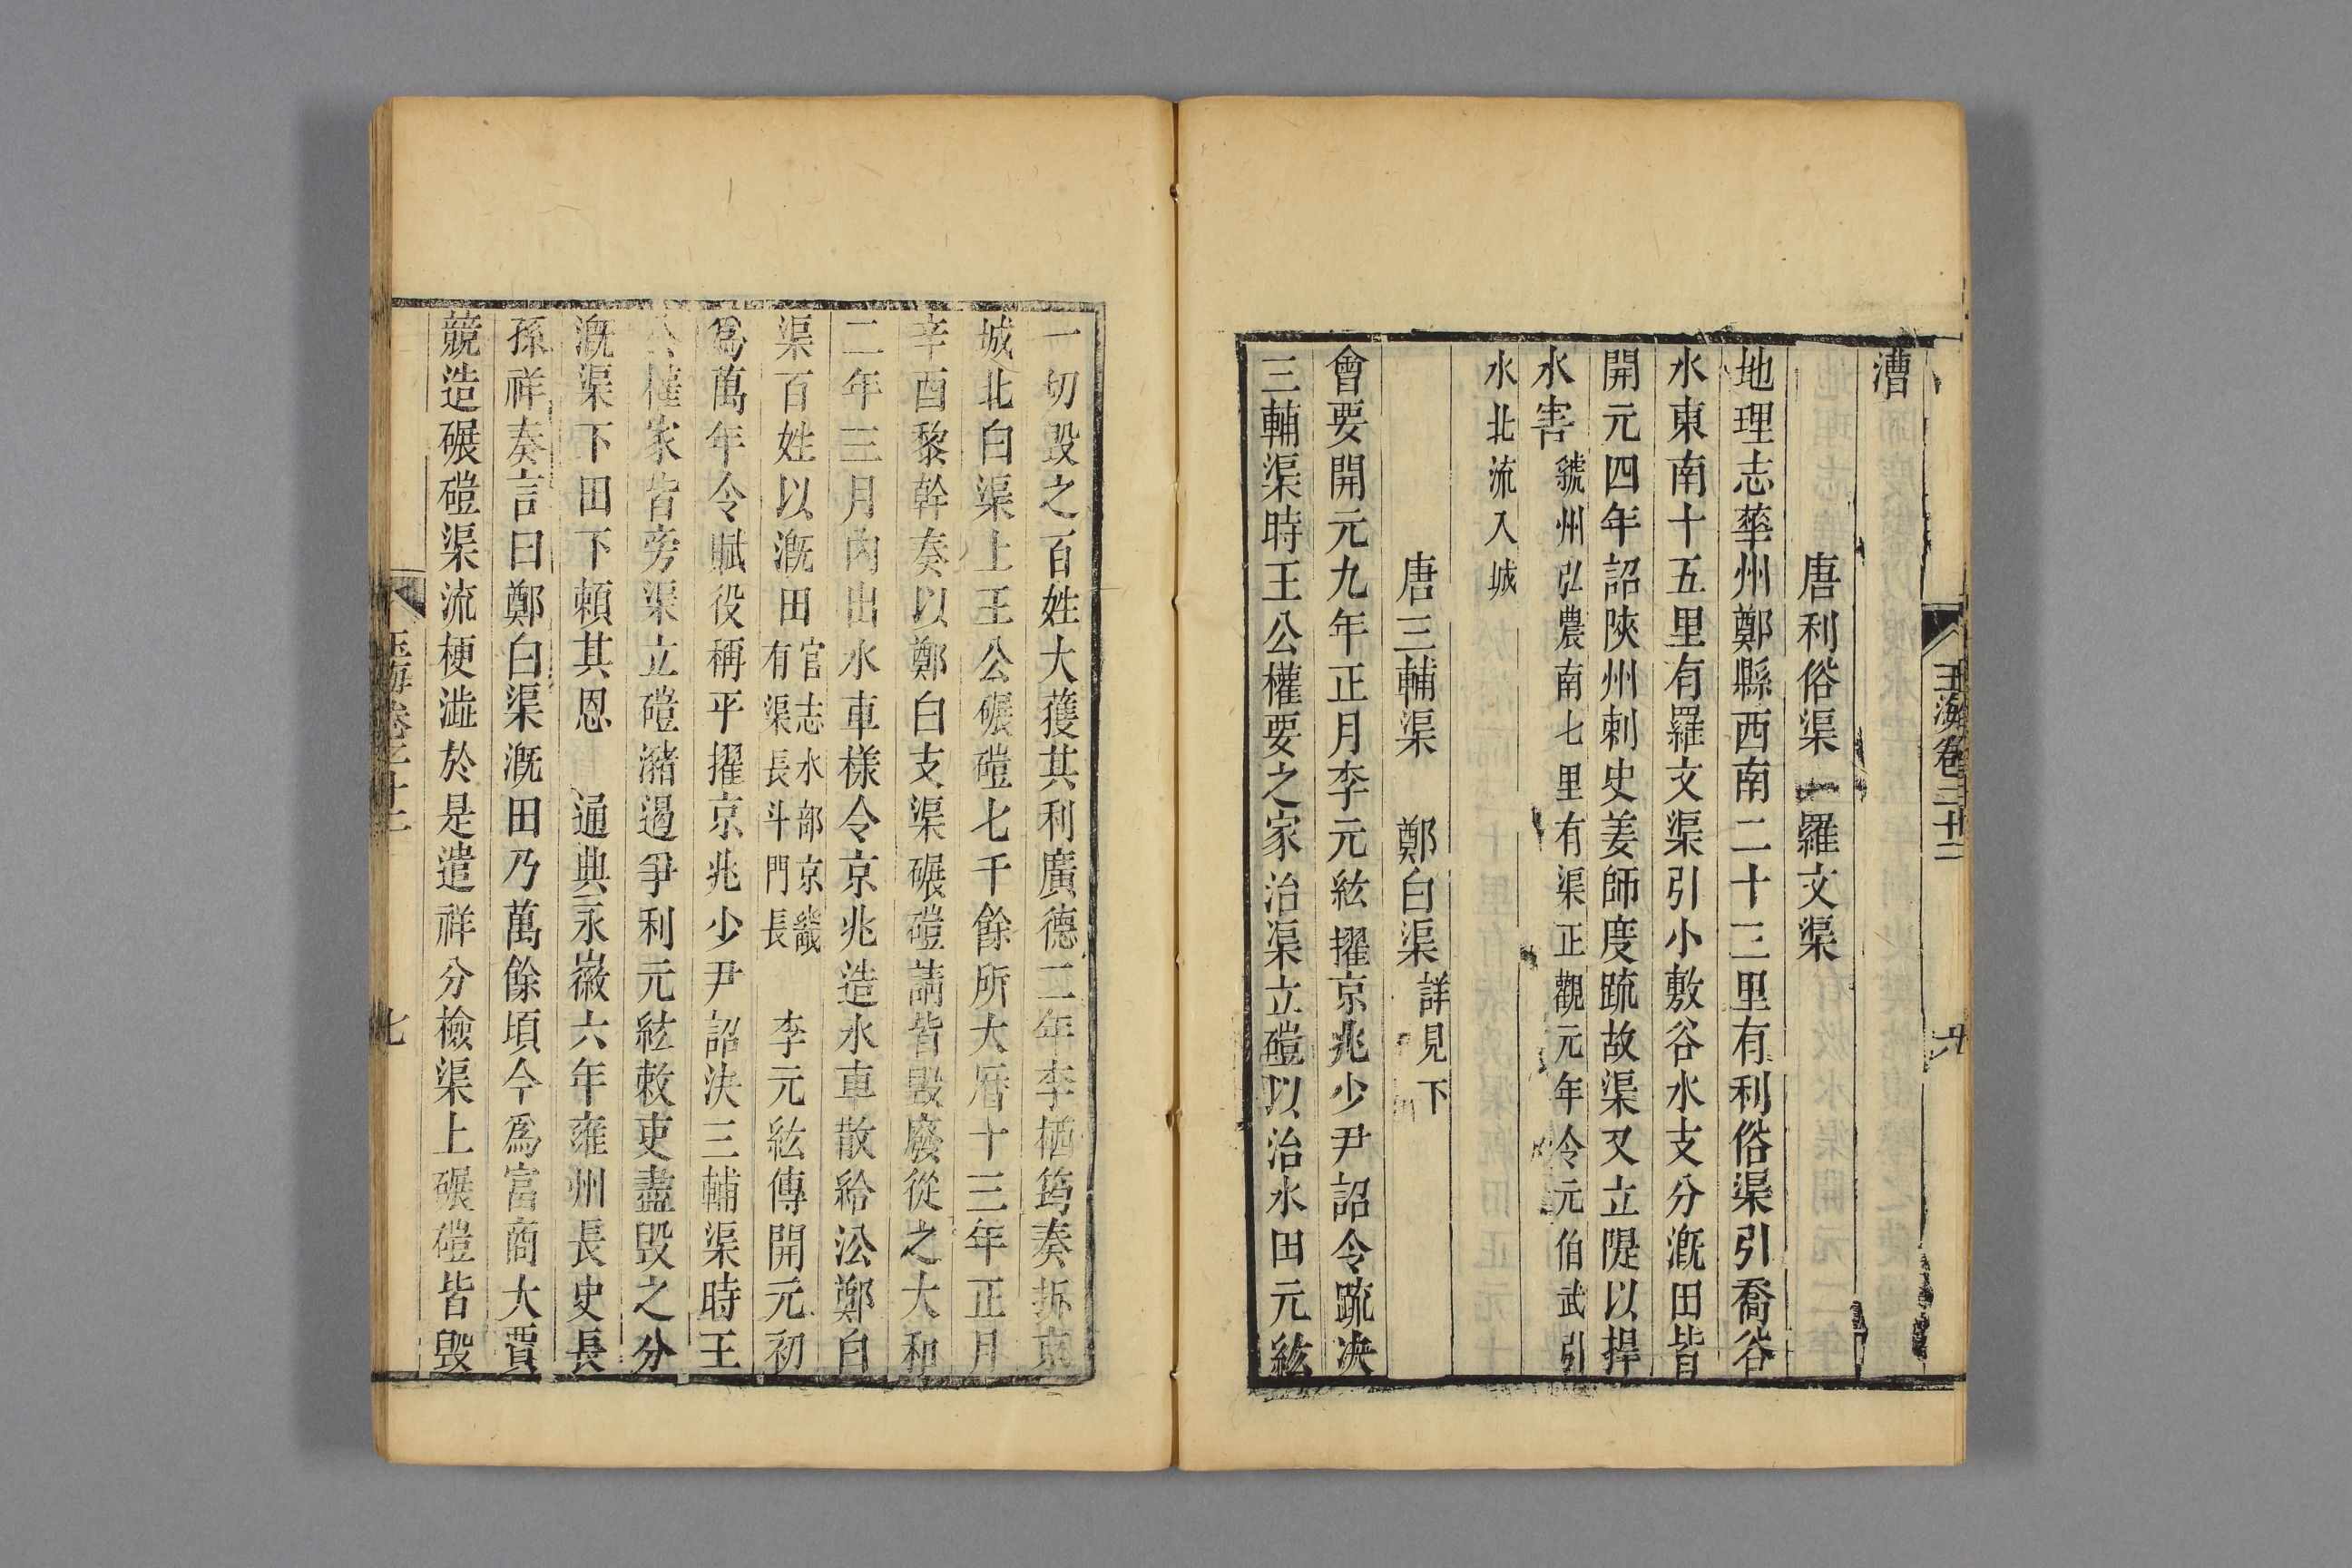 漕
唐利俗渠 羅文渠
地理志華州鄭縣西南二十三里有利俗渠引喬谷
水東南十五里有羅文渠引小敷谷水支分溉田皆
開元四年詔陝州刺史姜師度疏故渠又立隄以捍
水害虢州弘農南七里有渠正觀元年令元伯武引
水北流入城
唐三輔渠 鄭白渠詳見下
會要開元九年正月李元紘擢京兆少尹詔令疏决
三輔渠時王公權要之家治渠立磑以治水田元紘
一切毀之百姓大獲其利廣德二年李栖筠奏拆京
城北白渠上王公碾磑七千餘所大曆十三年正月
辛酉黎幹奏以鄭白支渠碾磑請皆毀廢從之大和
二年三月內出水車樣令京兆造水車散給㳂鄭白
渠百姓以溉田官志水部京畿有渠長斗門長 李元紘傳開元初
為萬年令賦役稱平擢京兆少尹詔決三輔渠時王
公權家皆旁渠立磑瀦遏爭利元紘敕吏盡毁之分
溉渠下田下賴其恩 通典永徽六年雍州長史長
孫祥奏言曰鄭白渠溉田乃萬餘頃今為富商大賈
競造碾磑渠流梗澁於是遣祥分檢渠上碾磑皆毀
七